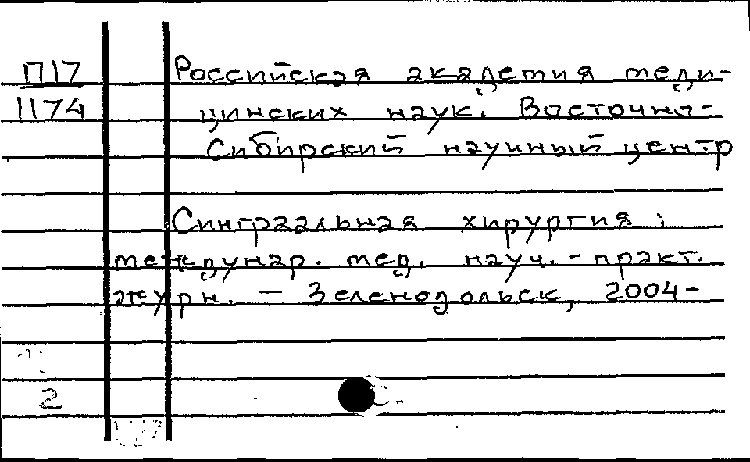 П17 Российская академия меди-
1174 цинских наук. Восточно-
Сибирский научный центр
Синграальная хирургия :
междунар. мед. науч.-практ.
журн. — Зеленодольск, 2004-
2